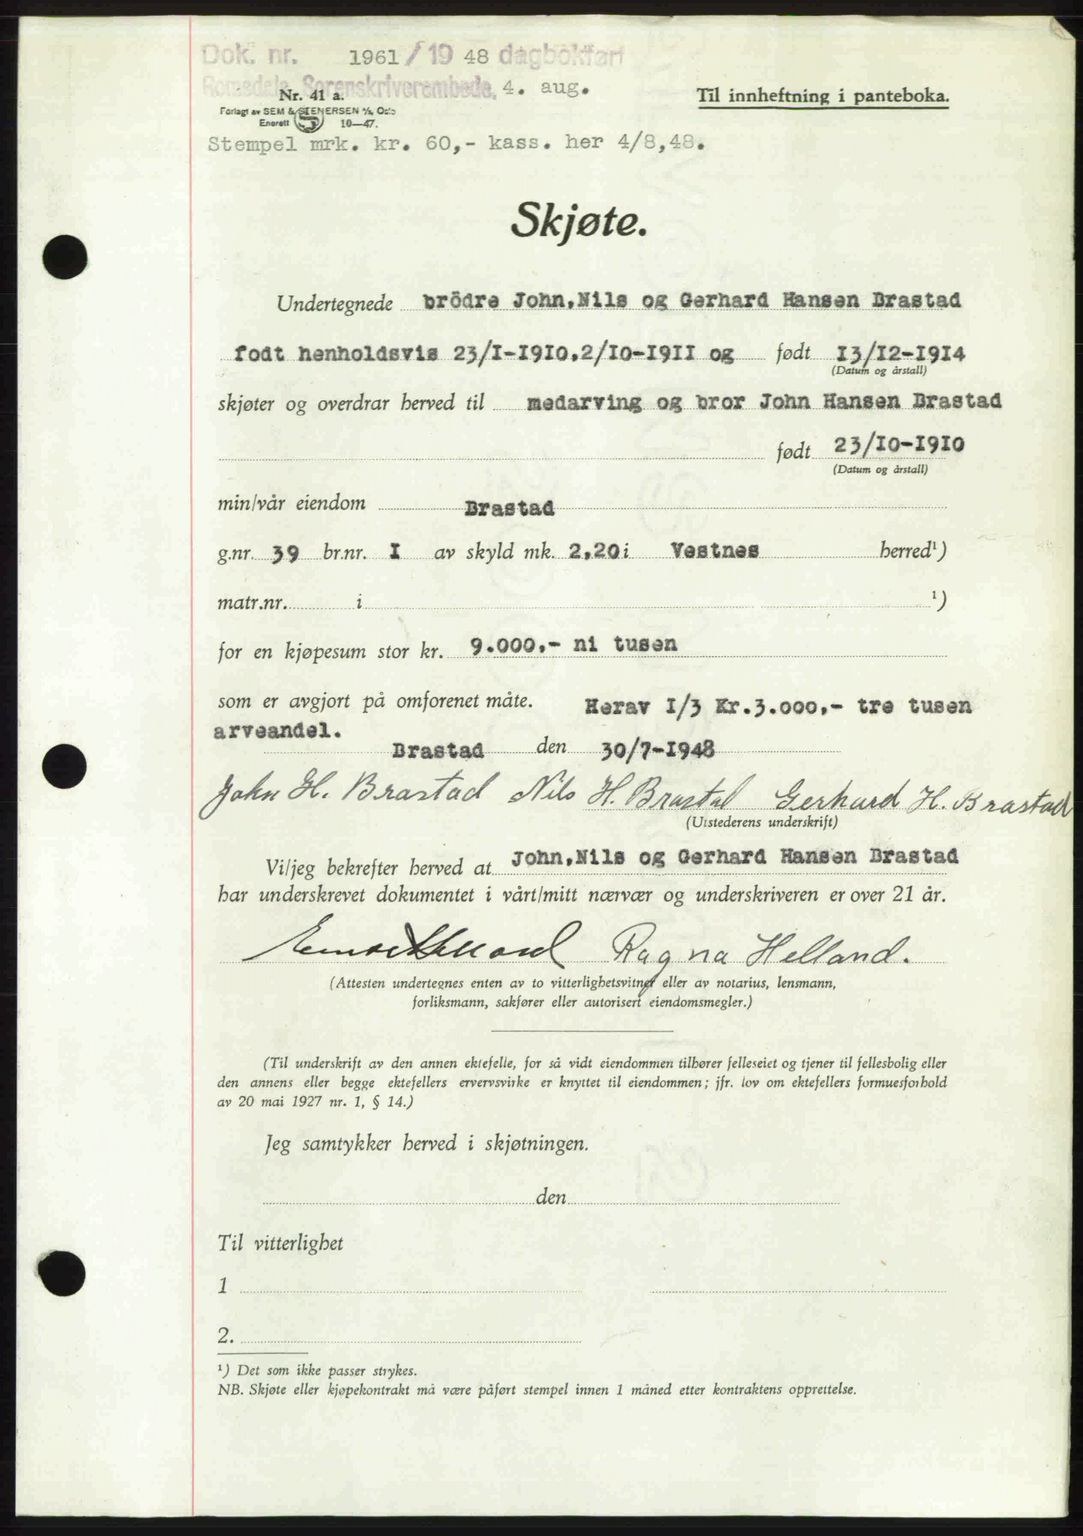 Dok. nr. 1961 / 19 48 dagbokført
Romsdals Sorenskriverembede, 4. aug.
Nr. 41 a.
Forlagt av SEM & STENERSEN A/s, Oslo
Enerett 10—47.
Til innheftning i panteboka.
Stempel mrk. kr. 60,- kass. her 4/8,48.
Skjøte.
Undertegnede brödre John,Nils og Gerhard Hansen Brastad
fodt henholdsvis 23/I-I9I0,2/I0-I9II og født I3/I2-I9I4
(Datum og årstall)
skjøter og overdrar herved til medarving og bror John Hansen Brastad
født 23/I0-I9I0
(Datum og årstall)
min/vår eiendom Brastad
g.nr. 39 br.nr. I av skyld mk. 2,20 i Vestnes herred¹)
matr.nr. i ¹)
for en kjøpesum stor kr. 9.000,- ni tusen
som er avgjort på omforenet måte. Herav I/3 Kr.3.000,- tre tusen
arveandel.
Brastad den 30/7-I948
John H. Brastad Nils H. Brastad Gerhard H. Brastad
(Utstederens underskrift)
Vi/jeg bekrefter herved at John,Nils og Gerhard Hansen Brastad
har underskrevet dokumentet i vårt/mitt nærvær og underskriveren er over 21 år.
Ragna Helland.
(Attesten undertegnes enten av to vitterlighetsvitner eller av notarius, lensmann,
forliksmann, sakfører eller autorisert eiendomsmegler.)
(Til underskrift av den annen ektefelle, for så vidt eiendommen tilhører felleseiet og tjener til fellesbolig eller
den annens eller begge ektefellers ervervsvirke er knyttet til eiendommen; jfr. lov om ektefellers formuesforhold
av 20 mai 1927 nr. 1, § 14.)
Jeg samtykker herved i skjøtningen.
den
Til vitterlighet
1
2.
¹) Det som ikke passer strykes.
NB. Skjøte eller kjøpekontrakt må være påført stempel innen 1 måned etter kontraktens opprettelse.